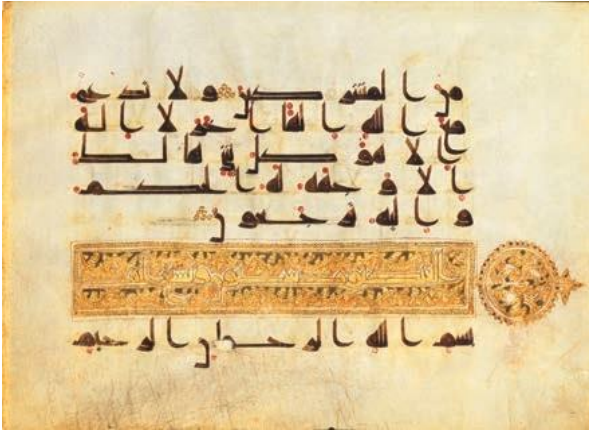 من المشركين ولا تدع
مع الله الها اخر لا اله
الا هو كل شى هالك
الا وجهه له الحكم
و اليه ترجعون
بسم الله الرحمن الرحيم